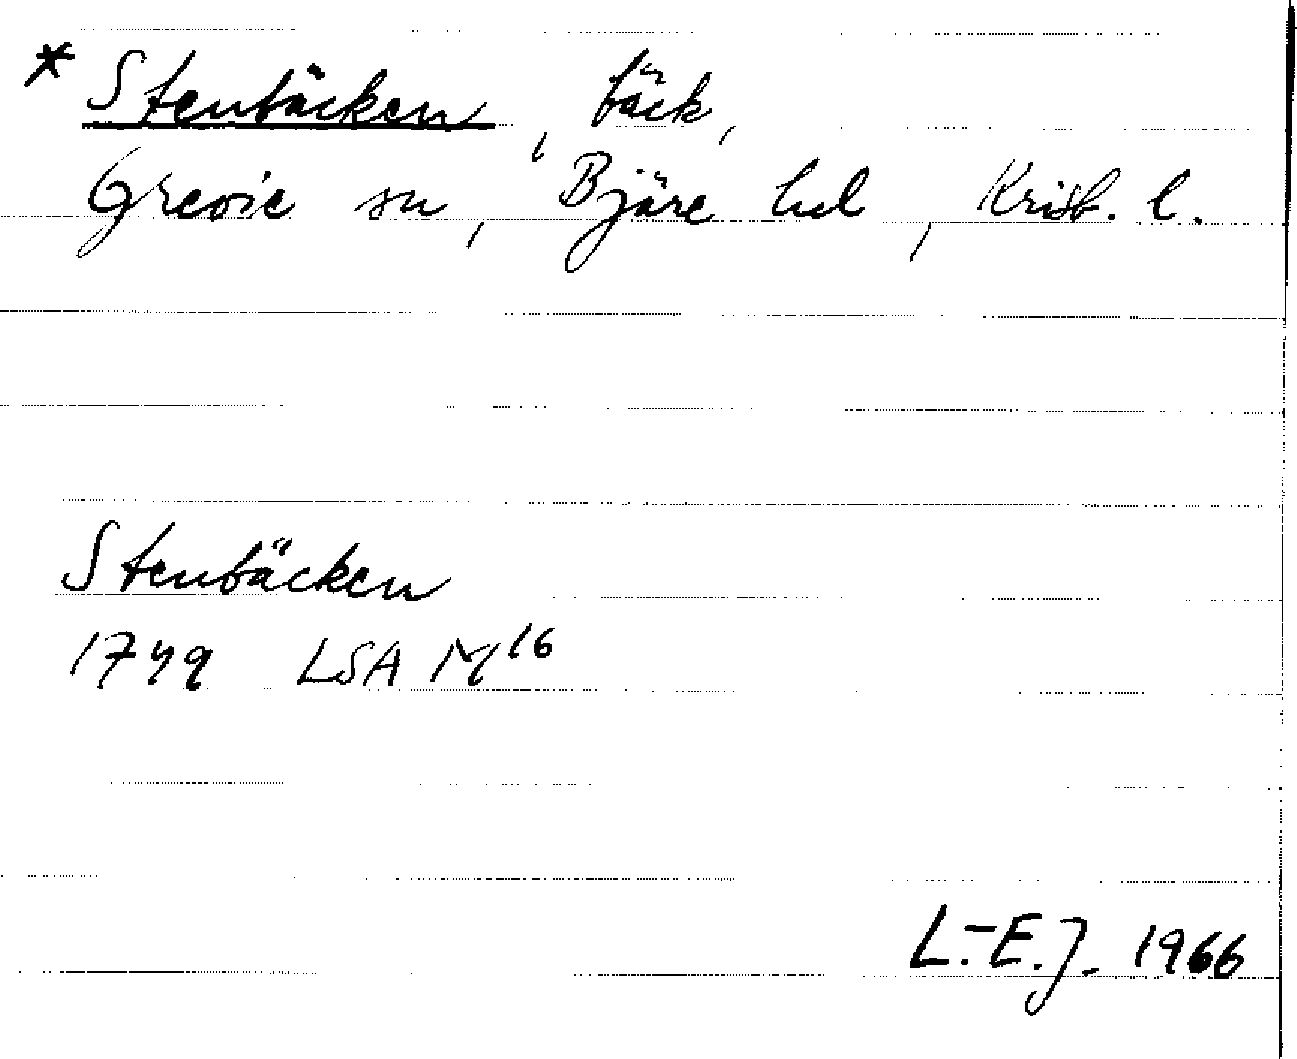 * Stenbäcken, bäck,
Grevie sn, Bjäre hd, Krist. l.
Stenbäcken
1749 LSA M16
L.-E.J. 1966